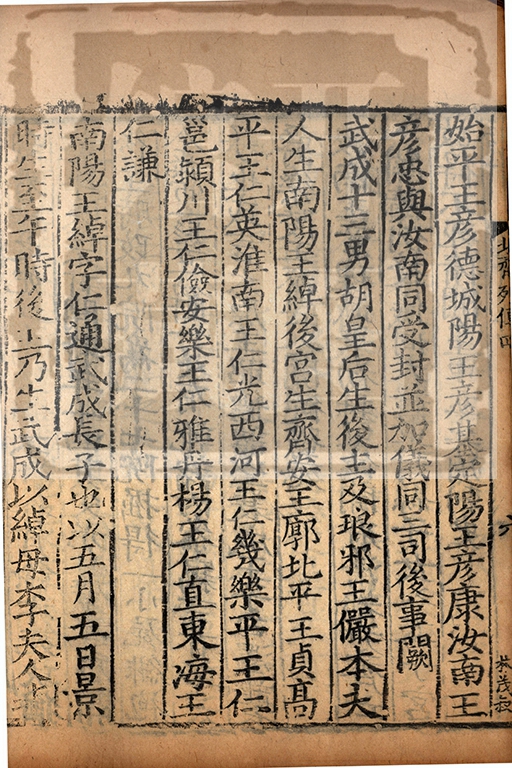 始平王彦德城陽王彦基定陽王彦康汝南王
彦忠與汝南同受封並加儀同三司後事闕
武成十三男胡皇后生後主及琅邪王儼本夫
人生南陽王綽後宮生齊安王廓北平王貞髙
平王仁英淮南王仁光西河王仁幾樂平王仁
邕潁川王仁儉安樂王仁雅丹楊王仁直東海王
仁謙
南陽王綽字仁通武成長子也以五月五日景
時生至午時後主乃生武成以綽母李夫人
北齊列傳四
六